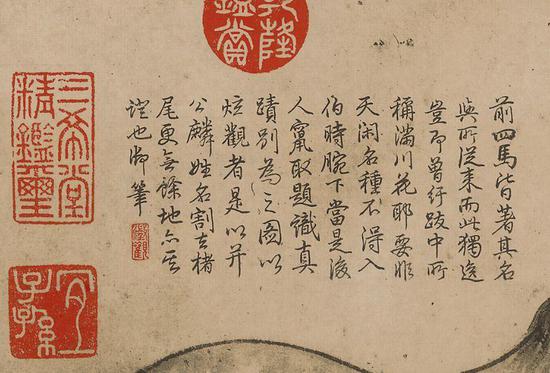 乾隆鑑賞
前四馬皆著其名
與所從來而此獨遺
豈即曾紆跋中所
稱滿川花耶要非
天閑名種不得入
伯時腕下當是後
人竄取題識真
蹟別為之圖以
炫觀者是以并
公麟姓名割去楮
尾更無餘地亦其
證也御筆
三希堂
精鑑璽
宜子孫